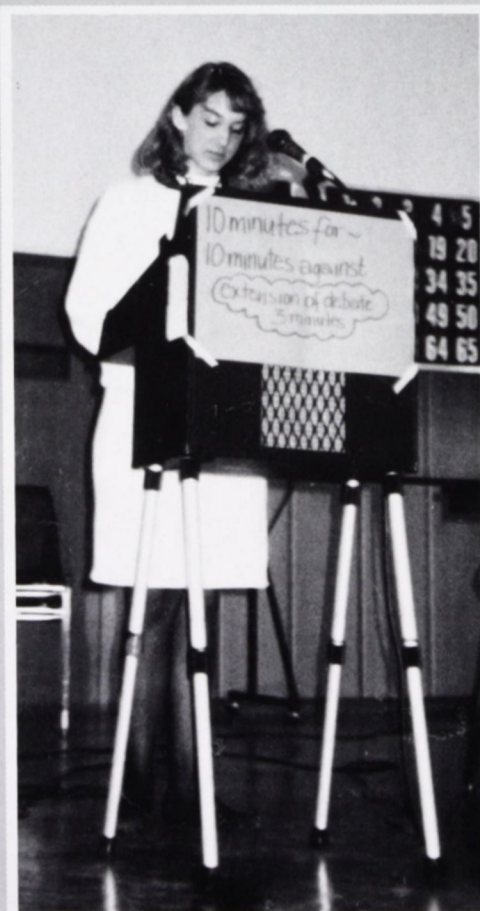 10 minutes for ~
10 minutes against
extension of debate
3 minutes
4 5
19 20
34 35
49 50
64 65